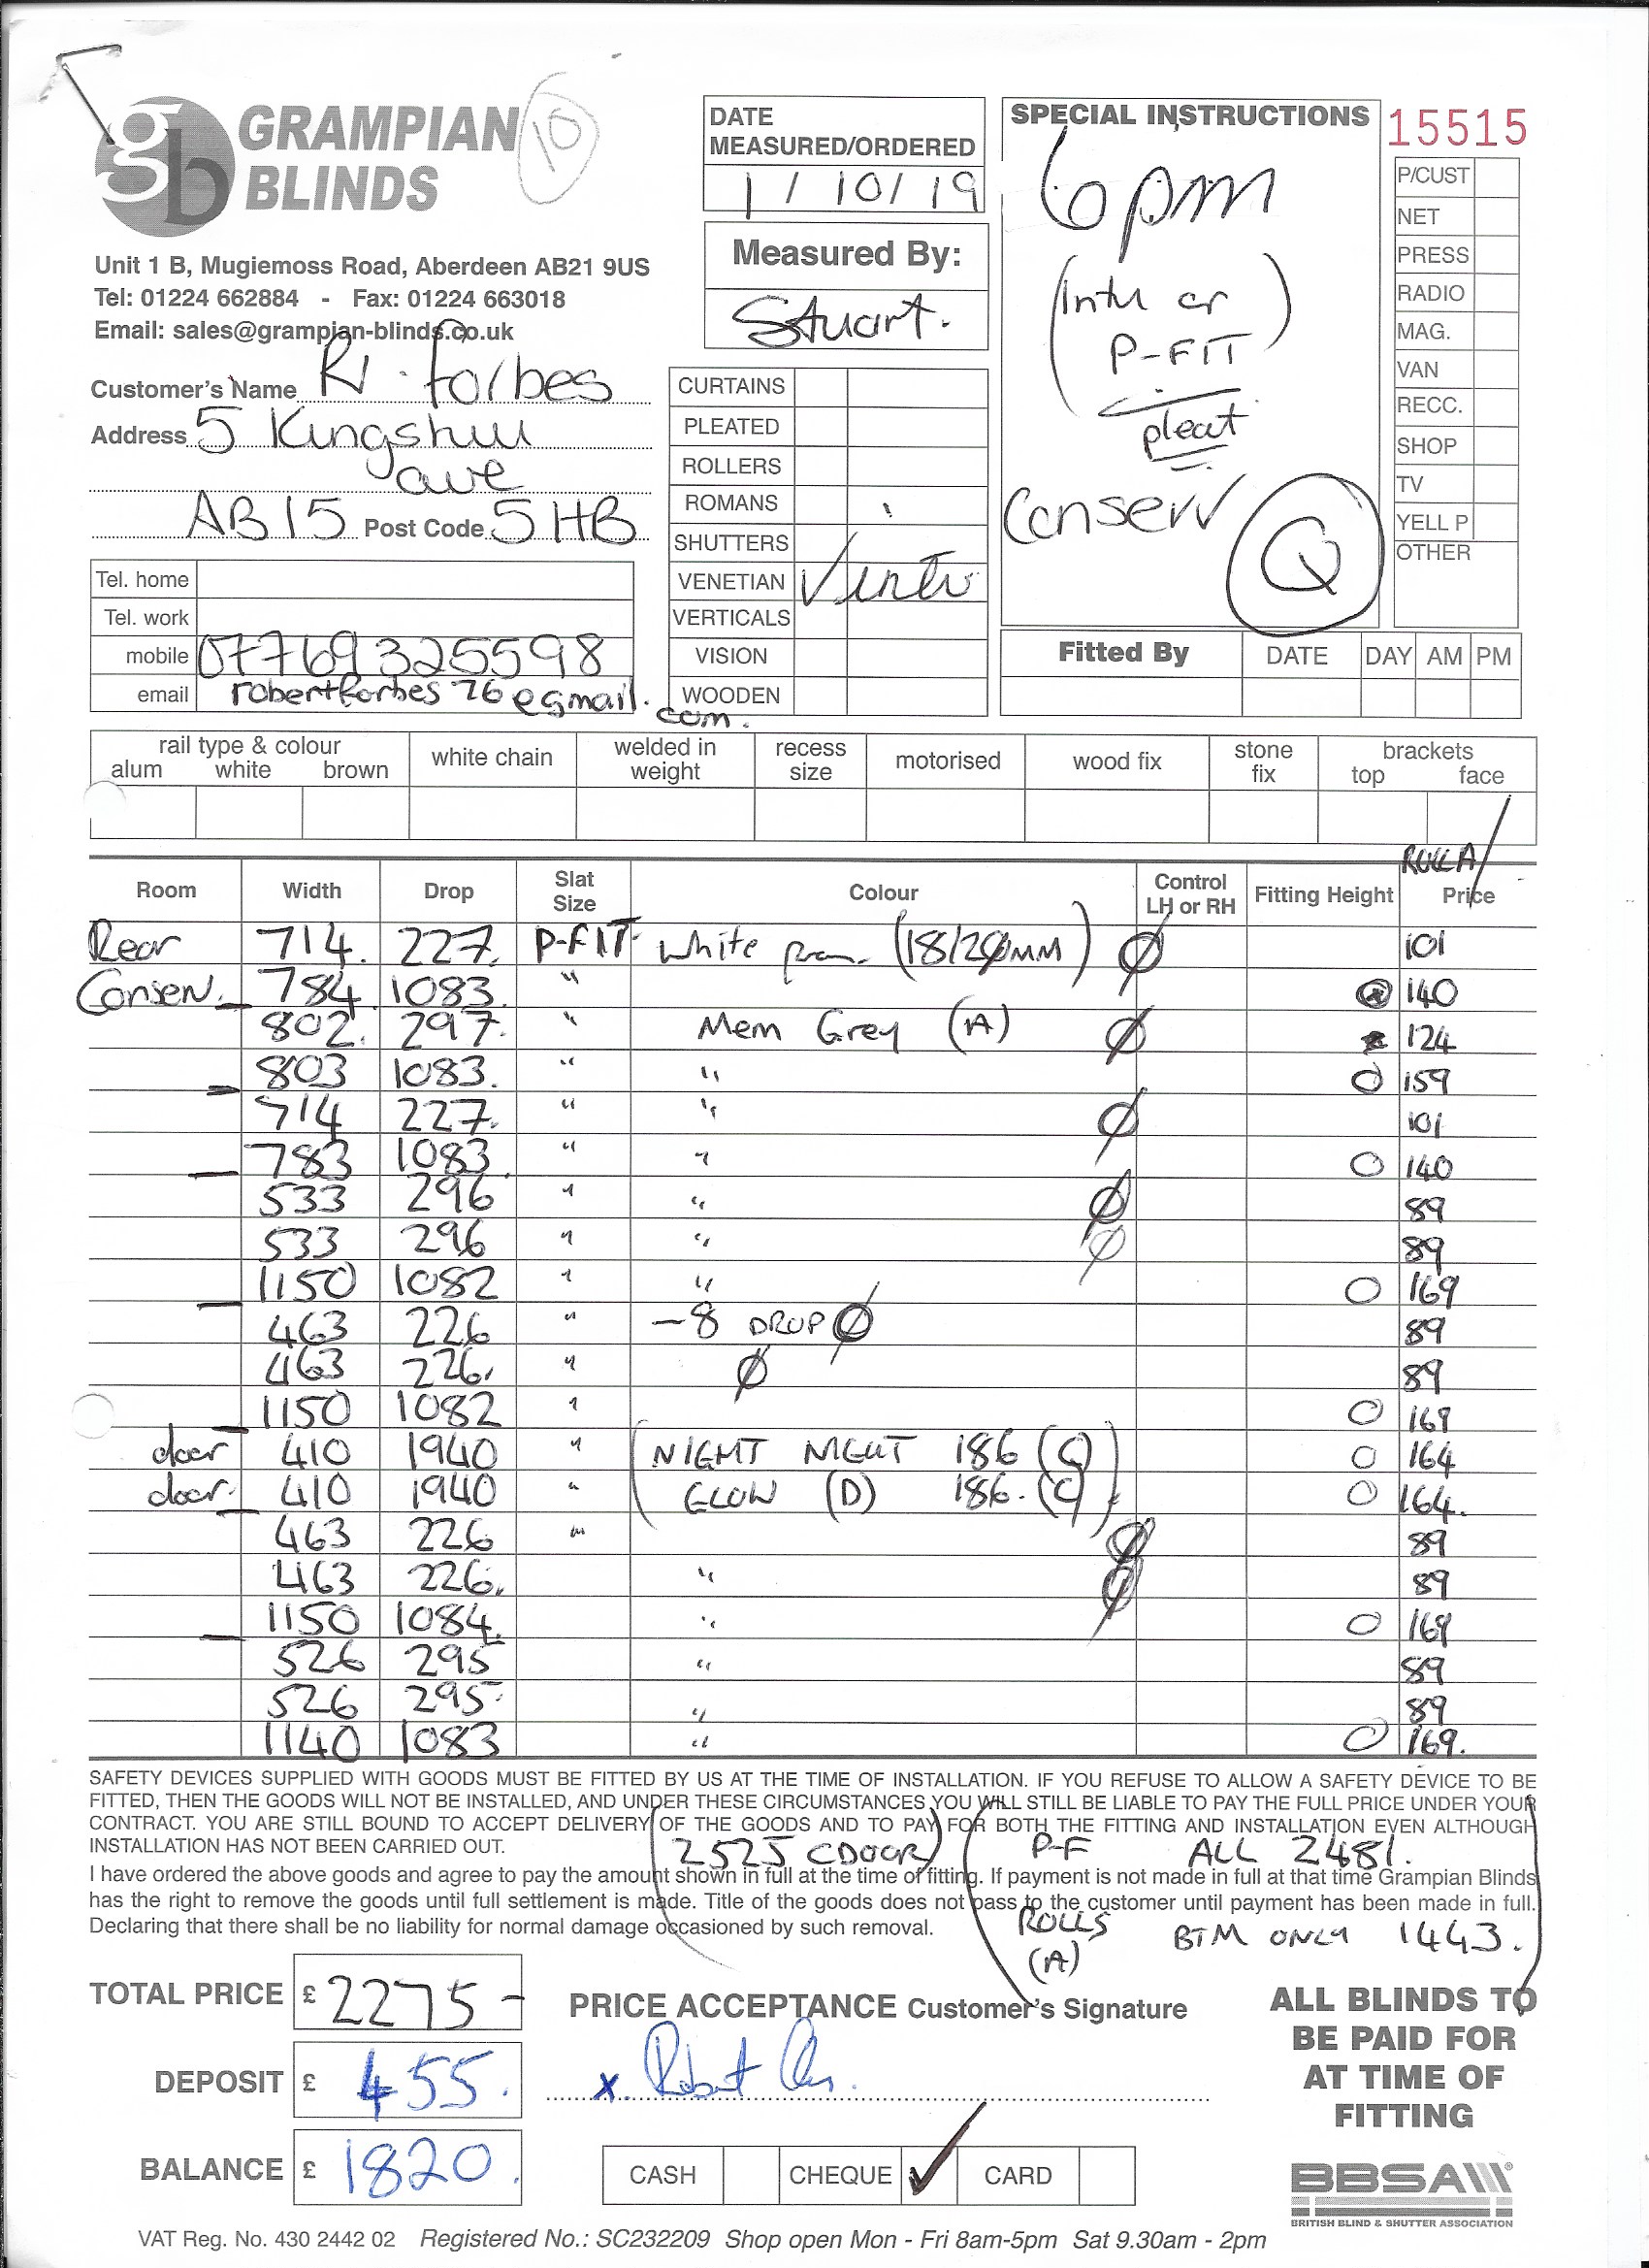 GRAMPIAN
BLINDS
10
Unit 1 B, Mugiemoss Road, Aberdeen AB21 9US
Tel: 01224 662884 - Fax: 01224 663018
Email: sales@grampian-blinds.co.uk
Customer's Name R. Forbes
Address 5 Kingshill
ave
AB15 Post Code 5HB
Tel. home
Tel. work
mobile 07769325598
email robertforbes76@gmail.com.
DATE
MEASURED/ORDERED
1/10/19
Measured By:
Stuart.
CURTAINS
PLEATED
ROLLERS
ROMANS
SHUTTERS
VENETIAN
VERTICALS
VISION
WOODEN
SPECIAL INSTRUCTIONS
6pm
(Intu or
P-FIT)
pleat
Conserv
Q
15515
P/CUST
NET
PRESS
RADIO
MAG.
VAN
RECC.
SHOP
TV
YELL P
OTHER
Fitted By DATE DAY AM PM
rail type & colour
alum white brown
white chain
welded in weight
recess size
motorised
wood fix
stone fix
brackets
top face
Room Width Drop Slat Size Colour Control LH or RH Fitting Height Price
Rear 714. 227. P-FIT White (18/20MM) Ø 101
Conserv. 784 1083. " 140
802. 297. " Mem Grey (A) Ø 124
803 1083. " " O 159
714 227. " " Ø 101
783 1083. " " O 140
533 296 " " Ø 89
533 296 " " Ø 89
1150 1082 " " O 169
463 226 " -8 DROP Ø 89
463 226. " Ø 89
1150 1082 " O 169
door 410 1940 " (NIGHT NIGHT 186 (C) O 164
door. 410 1940 " GLOW (D) 186. (C) O 164.
463 226 " Ø 89
463 226. " Ø 89
1150 1084. " O 169
526 295 " 89
526 295. " 89
1140 1083 " O 169.
SAFETY DEVICES SUPPLIED WITH GOODS MUST BE FITTED BY US AT THE TIME OF INSTALLATION. IF YOU REFUSE TO ALLOW A SAFETY DEVICE TO BE
FITTED, THEN THE GOODS WILL NOT BE INSTALLED, AND UNDER THESE CIRCUMSTANCES YOU WILL STILL BE LIABLE TO PAY THE FULL PRICE UNDER YOUR
CONTRACT. YOU ARE STILL BOUND TO ACCEPT DELIVERY OF THE GOODS AND TO PAY FOR BOTH THE FITTING AND INSTALLATION EVEN ALTHOUGH
INSTALLATION HAS NOT BEEN CARRIED OUT.
(2525 CDOOR) (P-F ALL 2481.
I have ordered the above goods and agree to pay the amount shown in full at the time of fitting. If payment is not made in full at that time Grampian Blinds
has the right to remove the goods until full settlement is made. Title of the goods does not pass to the customer until payment has been made in full.
Declaring that there shall be no liability for normal damage occasioned by such removal.
ROLLS (A) BTM ONLY 1443.)
TOTAL PRICE £ 2275-
DEPOSIT £ 455.
BALANCE £ 1820.
PRICE ACCEPTANCE Customer's Signature
x. Robert
CASH CHEQUE ✓ CARD
ALL BLINDS TO
BE PAID FOR
AT TIME OF
FITTING
BBSA
BRITISH BLIND & SHUTTER ASSOCIATION
VAT Reg. No. 430 2442 02 Registered No.: SC232209 Shop open Mon - Fri 8am-5pm Sat 9.30am - 2pm